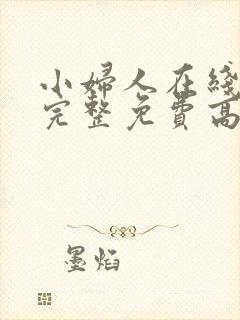 小婦人在綫
完整免費高
墨焰